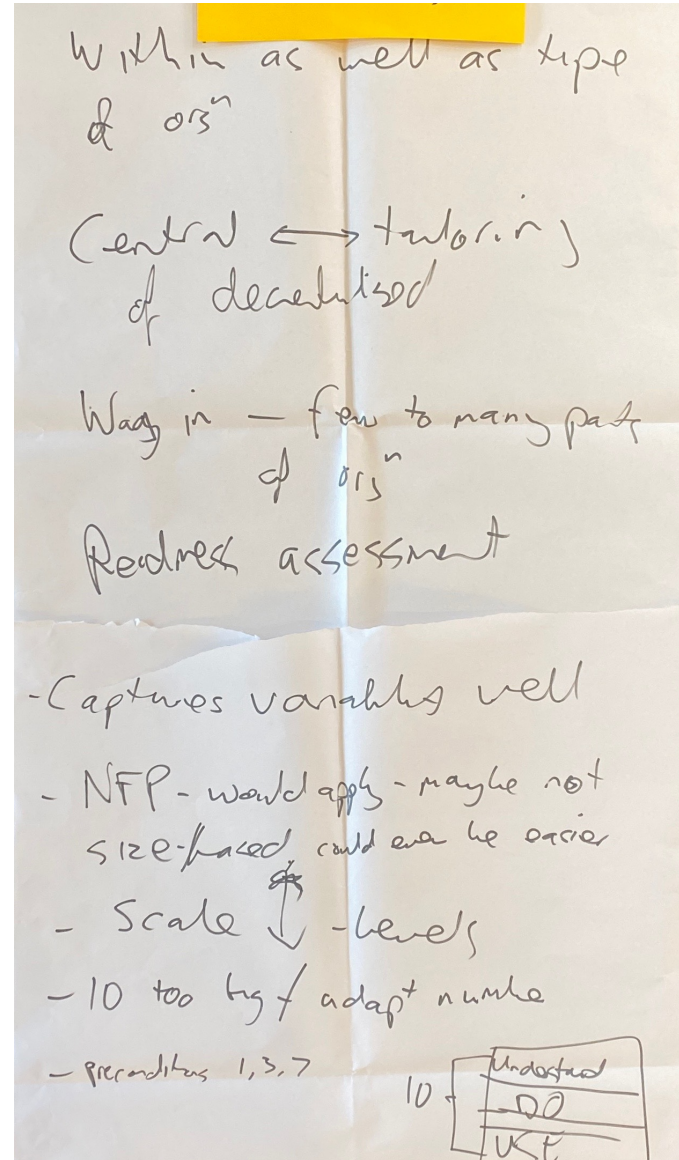 Within as well as type
of orgⁿ
Central ⟷ tailoring
of decentralised
Ways in – few to many parts
of orgⁿ
Readiness assessment
- Captures variables well
- NFP - would apply - maybe not
size-based could even be easier
- Scale ↕ - levels
- 10 too big / adapt number
- preconditions 1, 3, 7
10
Understand
DO
USE